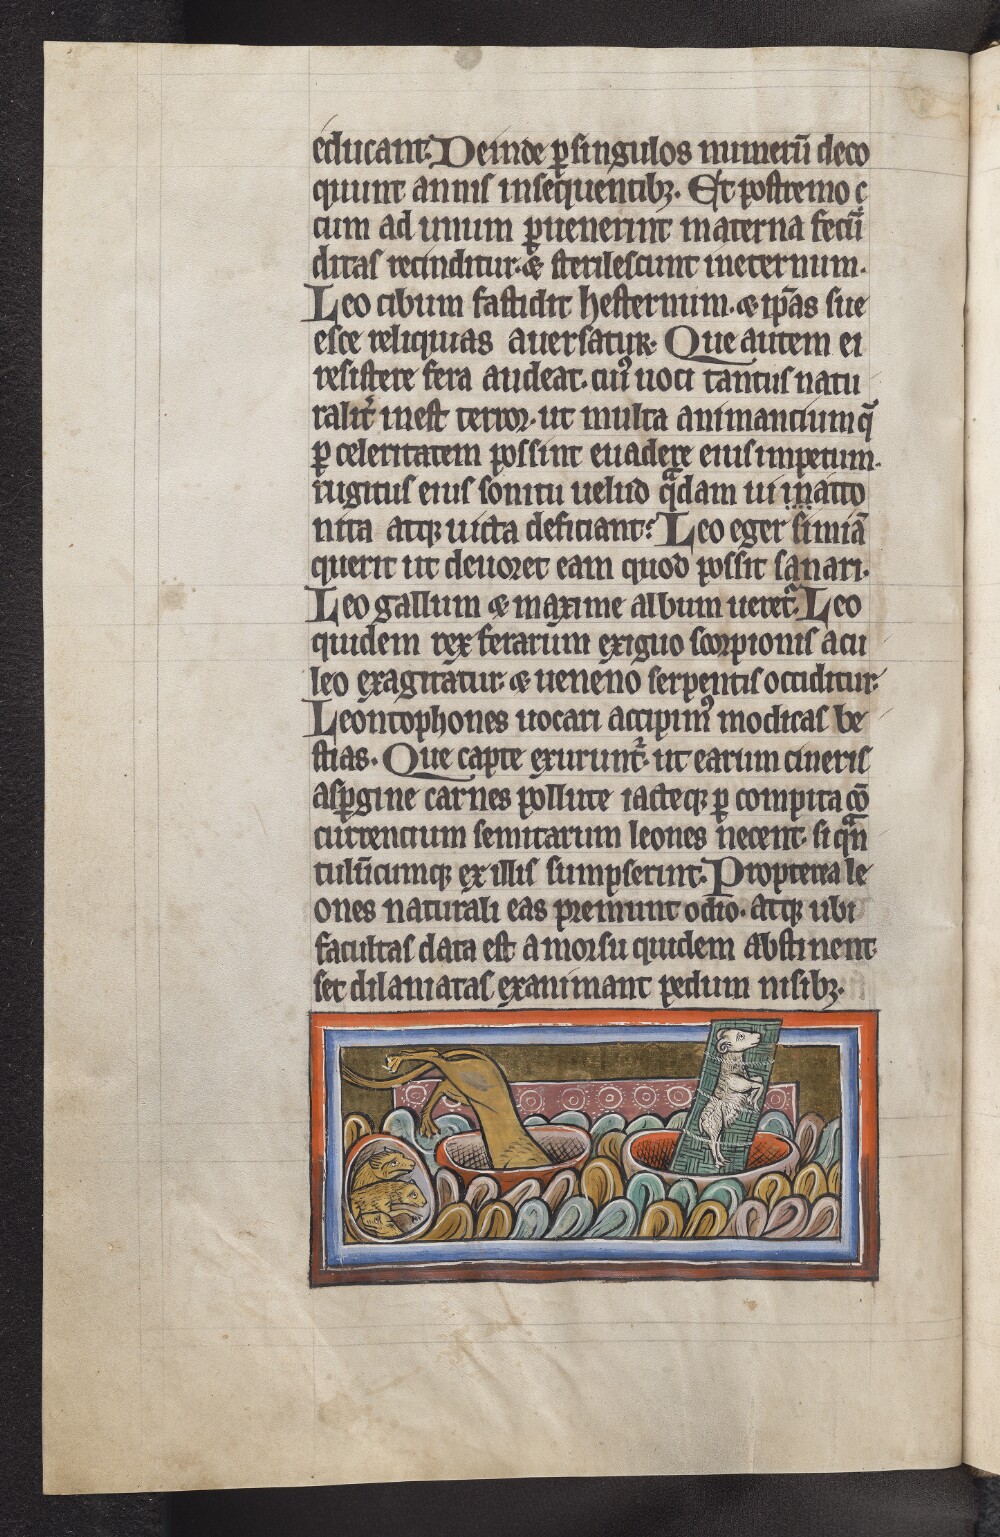 educant. Deinde ꝑ singulos numerū deco
quunt annis insequentibꝫ. Et postremo c
cum ad unum ꝑuenerint materna fecū
ditas recinditur. & sterilescunt ineternum.
Leo cibum fastidit hesternum. & ip̄as sue
esce reliquias auersatur. Que autem ei
resistere fera audeat. cuiꝰ uoci tantus natu
ralit̉ inest terror. ut multa animantium q̄
ꝑ celeritatem possint euadere eius impetum.
rugitus eius sonitu uelud q̄dam ui inatto
nita atqꝫ uicta deficiant? Leo eger simiā
querit ut deuoret eam quod possit sanari.
Leo gallum & maxime album ueret᷑. Leo
quidem rex ferarum exiguo scorpionis acu
leo exagitatur. & ueneno serpentis occiditur.
Leontophones uocari accipimꝰ modicas be
stias. Que capte exurunt᷑. ut earum cineris
asꝑgine carnes pollute iacteqꝫ ꝑ compita cō
currentium semitarum leones necent. si qn̄
tulūcumqꝫ ex illis sumpserint. Propterea le
ones naturali eas premunt odio. atqꝫ ubi
facultas data est a morsu quidem abstinent
set dilaniatas exanimant pedum nisibꝫ.